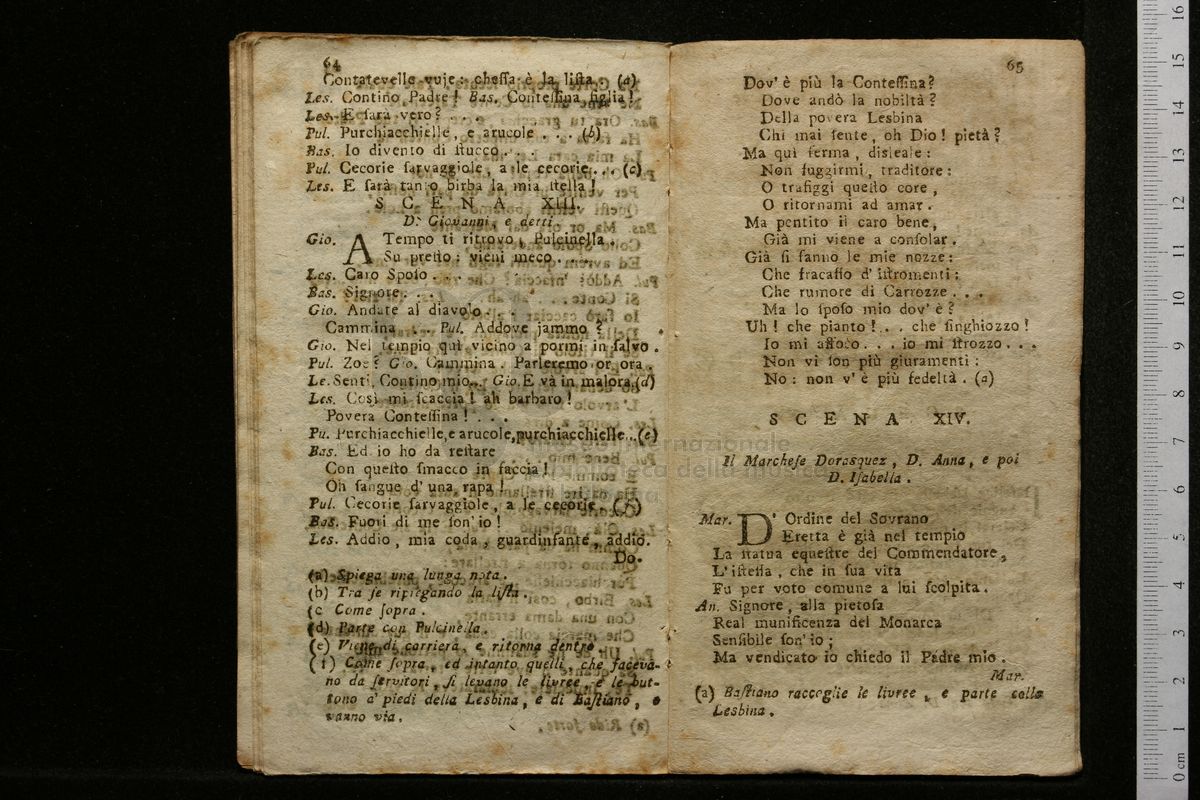 64
Contatevelle vuje: chessa è la lista. (a)
Les. Contino Padre! Bas. Contessina figlia!
Les. E sarà vero?
Pul. Purchiacchielle, e arucole . . . (b)
Bas. Io divento di stucco.
Pul. Cecorie sarvaggiole, a le cecorie... (c)
Les. E sarà tanto birba la mia stella!
SCENA XIII.
D. Giovanni, e detti.
Gio. A Tempo ti ritrovo, Pulcinella.
Su presto: vieni meco. . . .
Les. Caro Sposo . . .
Bas. Signore . . .
Gio. Andate al diavolo.
Cammina . . . Pul. Addove jammo?
Gio. Nel tempio quì vicino a pormi in salvo.
Pul. Zoe? Gio. Cammina. Parleremo or ora.
Le. Senti, Contino mio.. Gio. E và in malora.(d)
Les. Così mi scaccia! ah barbaro!
Povera Contessina! . . .
Pu. Purchiacchielle, e arucole, purchiacchielle...(e)
Bas. Ed io ho da restare
Con questo smacco in faccia!
Oh sangue d' una rapa!
Pul. Cecorie sarvaggiole, a le cecorie. (f)
Bas. Fuori di me son' io!
Les. Addio, mia coda, guardinfante, addio.
Do-
(a) Spiega una lunga nota.
(b) Tra se ripiegando la lista.
(c Come sopra.
(d) Parte con Pulcinella.
(e) Viene di carriera, e ritorna dentro.
(f) Come sopra, ed intanto quelli, che faceva-
no da servitori, si levano le livree, e le but-
tono a' piedi della Lesbina, e di Bastiano, e
vanno via.
65
Dov' è più la Contessina?
Dove andò la nobiltà?
Della povera Lesbina
Chi mai sente, oh Dio! pietà?
Ma quì ferma, disleale:
Non fuggirmi, traditore:
O trafiggi questo core,
O ritornami ad amar.
Ma pentito il caro bene,
Già mi viene a consolar.
Già si fanno le mie nozze:
Che fracasso d' istromenti:
Che rumore di Carrozze . . .
Ma lo sposo mio dov' è?
Uh! che pianto! . . che singhiozzo!
Io mi affoco . . . io mi strozzo . . .
Non vi son più giuramenti:
No: non v' è più fedeltà. (a)
SCENA XIV.
Il Marchese Dorasquez, D. Anna, e poi
D. Isabella.
Mar. D' Ordine del Sovrano
Eretta è già nel tempio
La statua equestre del Commendatore,
L' istessa, che in sua vita
Fu per voto comune a lui scolpita.
An. Signore, alla pietosa
Real munificenza del Monarca
Sensibile son' io;
Ma vendicato io chiedo il Padre mio.
Mar.
(a) Bastiano raccoglie le livree, e parte colla
Lesbina.